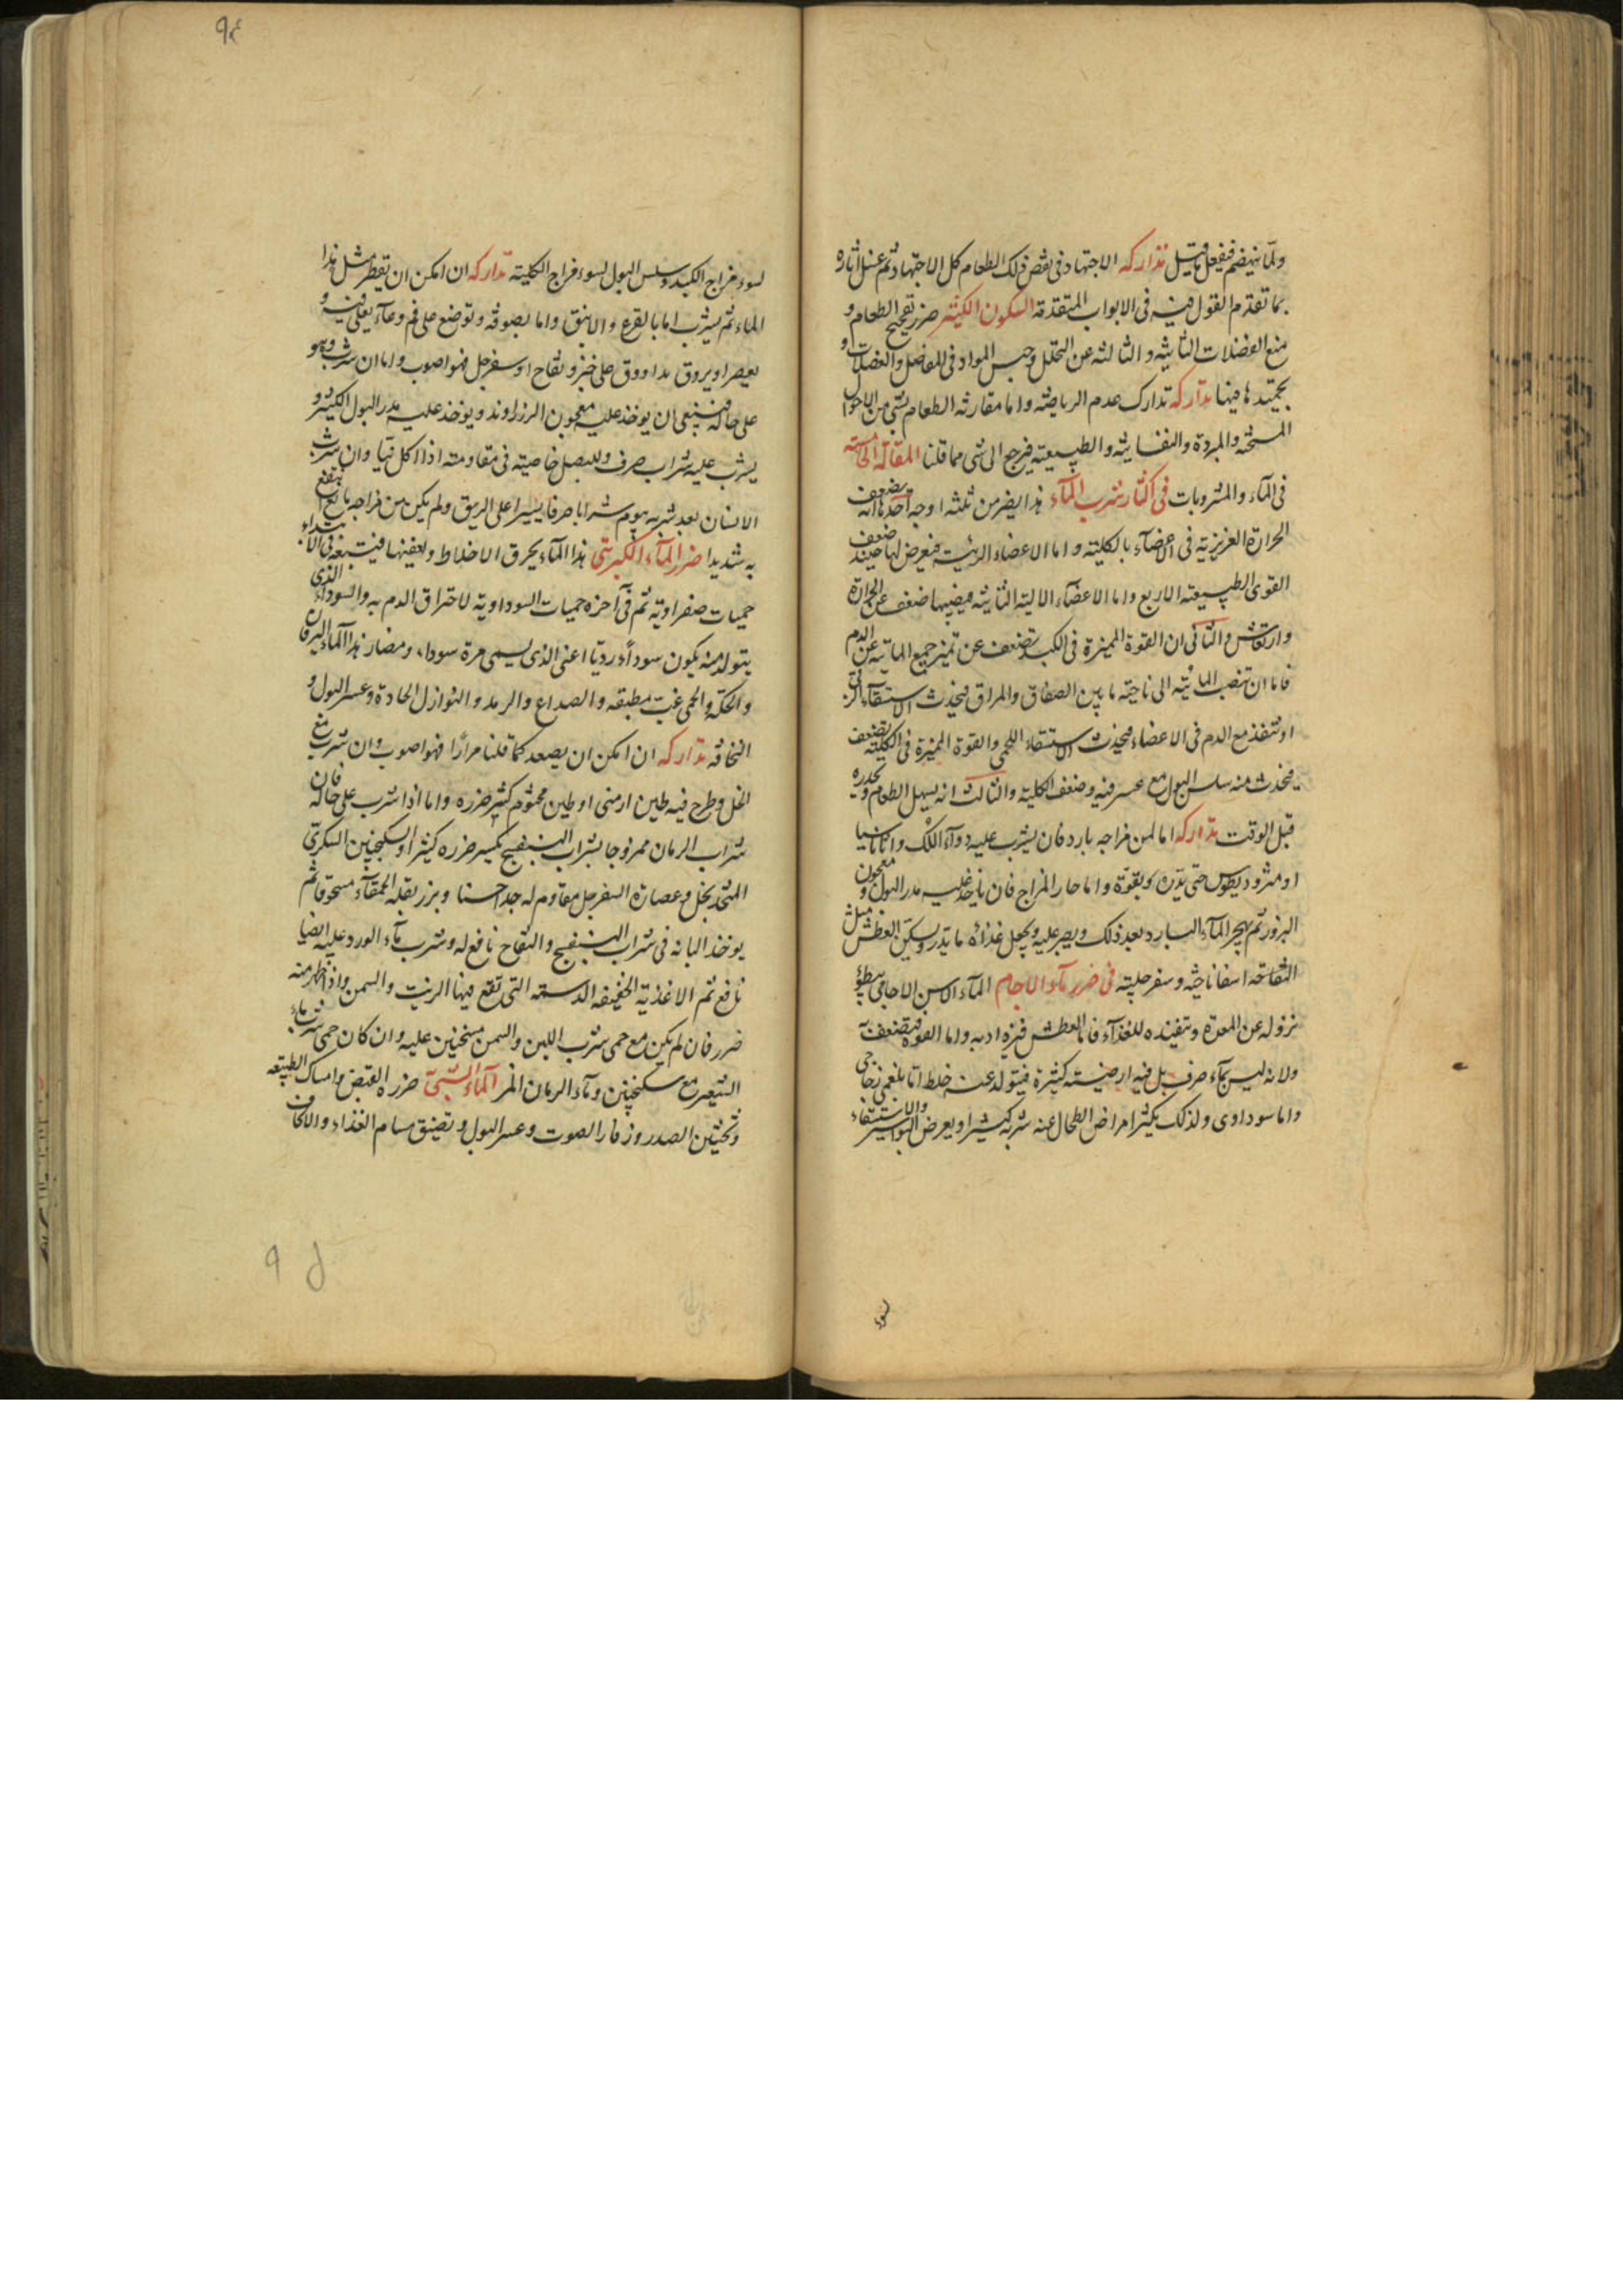 ولما ينهضم فيفعل ما قيل تداركه الاجتهاد فى نفض ذلك الطعام كل الاجتهاد ثم غسل اثاره
بما تقدم القول فيه فى الابواب المتقدمة السكون الكثير ضرره تفجيج الطعام و
منع الفضلات الثانيه و الثالثه عن التحلل وحبس المواد فى المفاصل والعضلات و
تداركه تدارك عدم الرياضه واما مقارنه الطعام لشى من الاحوال
المسخنه والمبردة والنفسانيه والطبيعيه فيرجع الى شى مما قلنا المقالة الخامسة
فى المآء والمشروبات فى اكثار شرب المآء هذا يضر من ثلثه اوجه احدها انه يضعف
الحرارة الغريزية فى الاعضآء بالكليته واما الاعضاء الرئيسه فيعرض لها حينئذ ضعف
القوى الطبيعيه الاربع واما الاعضآء الاليه الثانيه فيصيبها ضعف عن الحرارة
وارتعاش والثانى ان القوة المميزة فى الكبد تضعف عن تميز جميع المائيه عن الدم
فاما ان تنصب المائيه الى ناحيه ما بين الصفاق والمراق فيحدث الاستسقآء الزقى
او تنفذ مع الدم فى الاعضاء فيحدث الاستسقاء اللحمى والقوة المميزة فى الكليه تضعف
فيحدث منه سلس البول مع عسر فيه وضعف الكليه والثالث انه يسهل الطعام ويحدره
قبل الوقت تداركه اما لمن مزاجه بارد فان يشرب عليه دوآء اللك واثاناسيا
او مثروديطوس حتى يدره بقوة واما حار المزاج فان ياخذ عليه مدر البول و معجون
البزور ثم يهجر المآء البارد بعد ذلك ويصبر عليه ويجعل غذائه ما يدر ويسكن العطش مثل
التفاحه اسفاناخيه وسفرجليه فى ضرر مآء الاجام المآء الاسن الاجامى يبطؤ
نزوله عن المعدة وتنفيذه للغذآء فاما العطش فيزداد به واما القوة فيضعف به
ولانه ليس بمآء صرف بل فيه ارضيته كثيرة فيتولد عنه خلط اما بلغمى زجاجى
واما سوداوى ولذلك يكثر امراض الطحال عنه شربه كثيرا ويعرض البواسير والاستسقاء
لسوء
لسوء مزاج الكبد وسلس البول لسوء مزاج الكليته تداركه ان امكن ان يقطر مثل هذا
الماء ثم يشرب اما بالقرع والانبيق واما بصوفه وتوضع على فم وعآء يغلى فيه و
يعصر او يروق على خبز وتفاح او سفرجل فهو اصوب واما ان شرب وهو
على حاله فينبغى ان يوخذ عليه معجون الرزاوند ويوخذ عليه مدر البول الكثير و
يشرب عليه شراب صرف وللبصل خاصيته فى مقاومته اذا اكل نيا وان شرب
الانسان بعد شربه بيوم شرابا صرفا يسيرا على الريق ولم يكن من مزاجه مانع انتفع
به شديدا ضرر المآء الكبريتى هذا المآء يحرق الاخلاط ويعفنها فيتبعه فى الابتداء
حميات صفراوية ثم فى آخره حميات السوداوية لاحتراق الدم به والسودآء الذى
يتولد منه يكون سودآء رديا اعنى الذى يسمى مرة سوداء ومضار هذا المآء اليرقان
والحكة والحمى غب مطبقه والصداع والرمد والنوازل الحادة وعسر البول و
النحافه تداركه ان امكن ان يصعد كما قلنا مرارا فهو اصوب وان شرب مع
الخل وطرح فيه طين ارمنى او طين مختوم كثير ضرره واما اذا شرب على حاله فان
شراب الرمان ممزوجا بشراب البنفسج يكسر ضرره كثيرا والسكنجبين السكرى
المتخذ بخل وعصارة السفرجل مقاوم له جدا حسنا وبزر بقله الحمقآء مسحوقا ثم
يوخذ البانه فى شراب البنفسج والتفاح نافع له وشرب مآء الورد عليه ايضا
نافع ثم الاغذيه الخفيفه الدسمه التى تقع فيها الزيت والسمن واذا ظهر منه
ضرر فان لم يكن مع حمى شرب اللبن والسمن مسخنين عليه وان كان حمى شرب ماء
الشعير مع سكنجبين ومآء الرمان المز المآء الشبى ضرره القبض وامساك الطبيعه
وتخشين الصدر وزمار الصوت وعسر البول وتضيق مسام الغذاء والالحاف